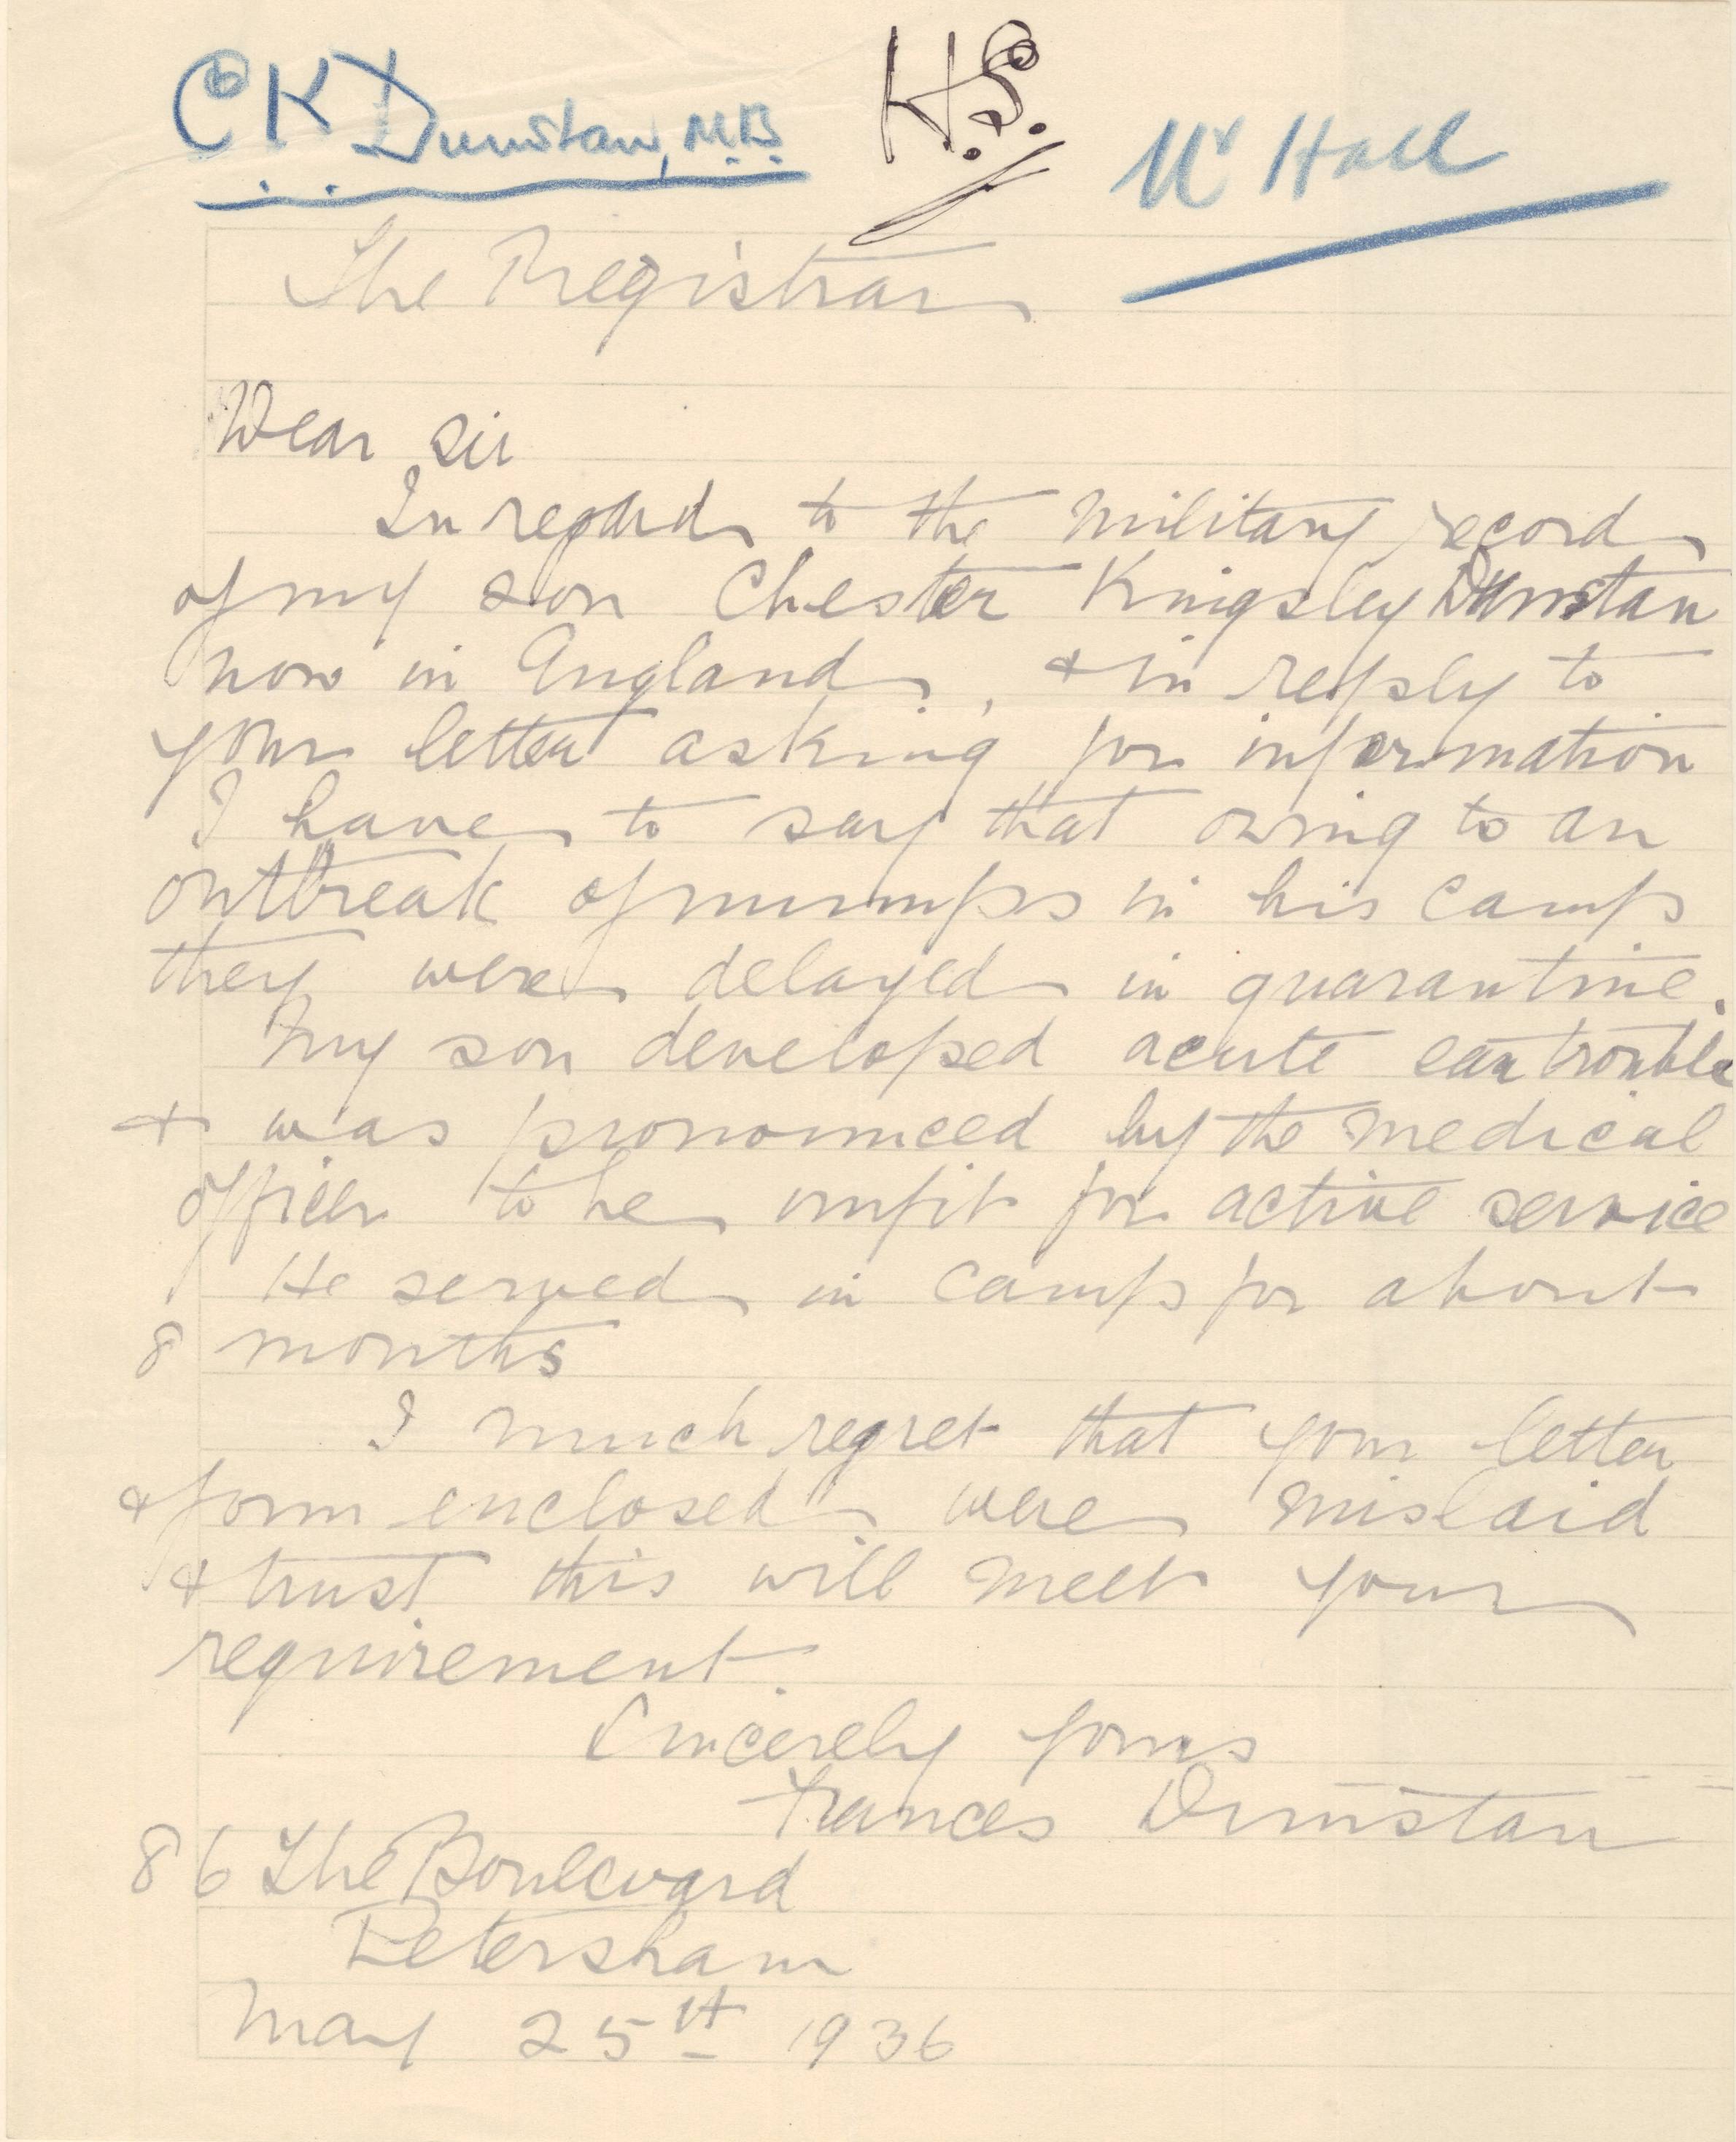 C K Dunstan, M.B.
HS.
Mr Hall
The Registrar
Dear Sir
In regard to the military record
of my son Chester Kingsley Dunstan
now in England, & in reply to
your letter asking for information
I have to say that owing to an
outbreak of mumps in his camp
they were delayed in quarantine.
My son developed acute ear trouble
& was pronounced by the medical
officer to be unfit for active service
He served in camp for about
8 months
I much regret that your letter
& form enclosed were mislaid
& trust this will meet your
requirement.
Sincerely yours
Frances Dunstan
86 The Boulevard
Petersham
May 25th 1936